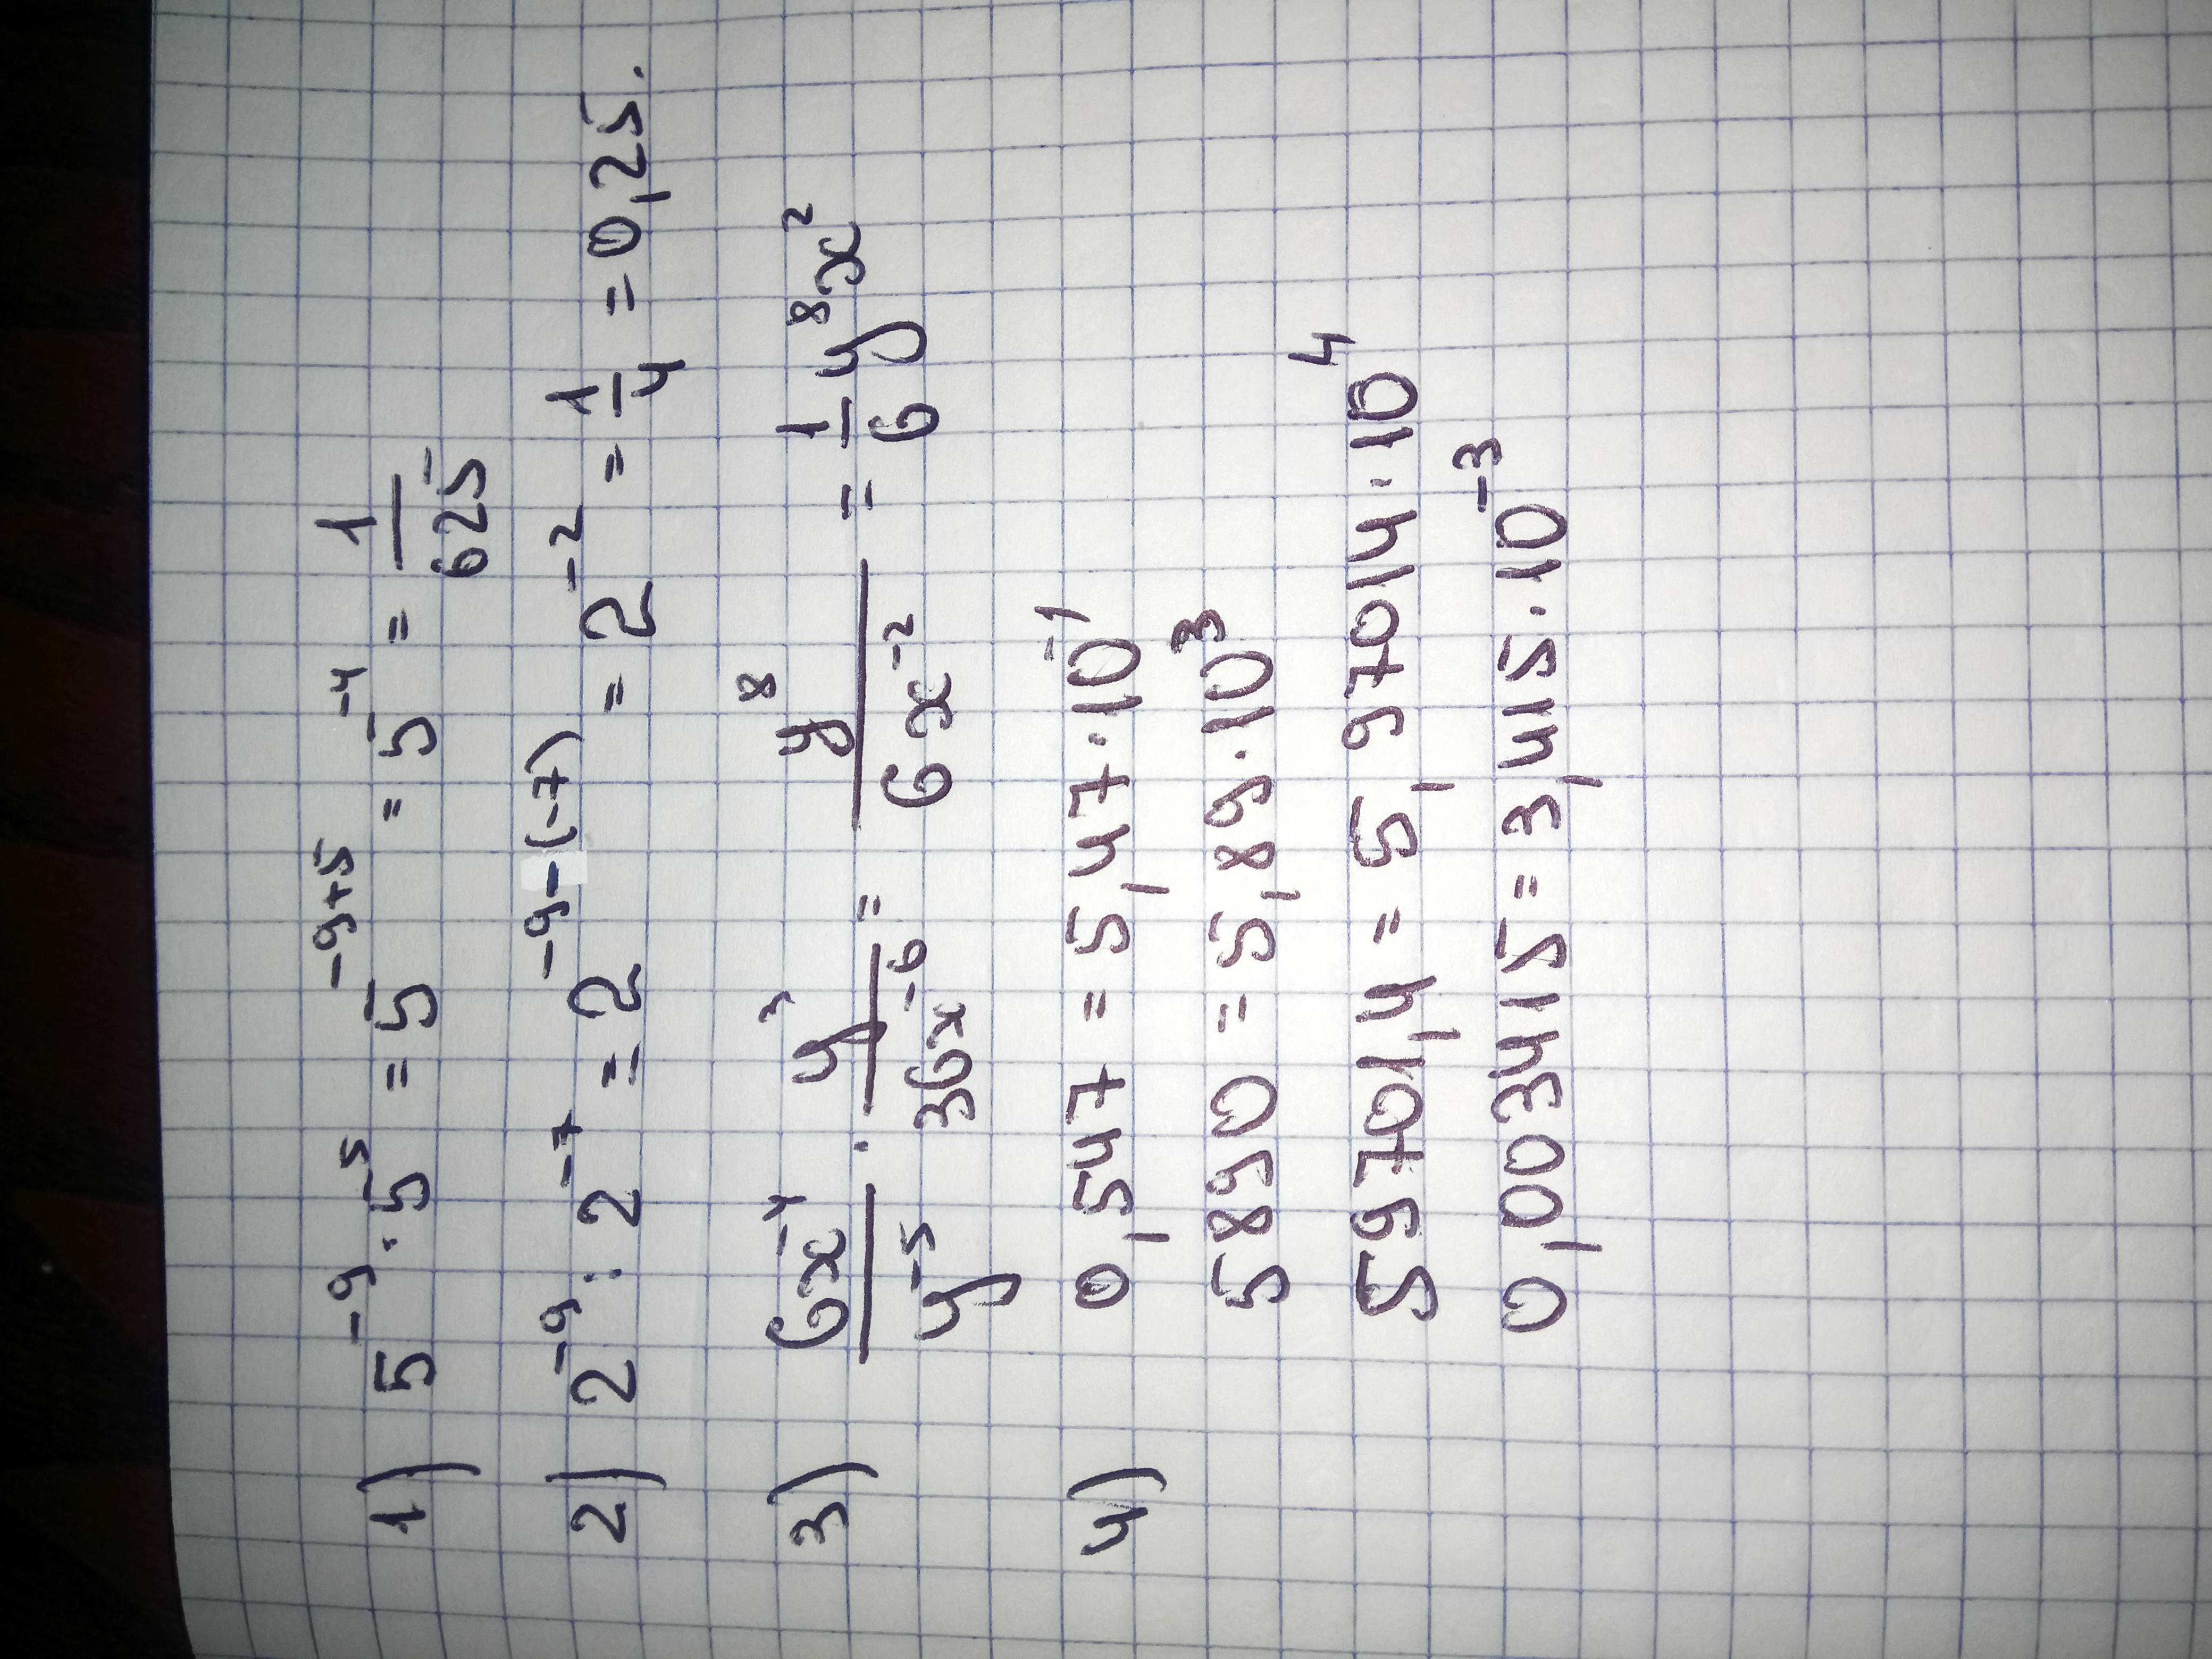 1) 5⁻⁹ · 5⁵ = 5⁻⁹⁺⁵ = 5⁻⁴ = 1/625
2) 2⁻⁹ : 2⁻⁷ = 2⁻⁹⁻⁽⁻⁷⁾ = 2⁻² = 1/4 = 0,25.
3) 6x⁻⁴/y⁻⁵ · y³/36x⁻⁶ = y⁸/6x⁻² = 1/6 y⁸x²
4) 0,547 = 5,47 · 10⁻¹
5890 = 5,89 · 10³
59701,4 = 5,97014 · 10⁴
0,003415 = 3,415 · 10⁻³